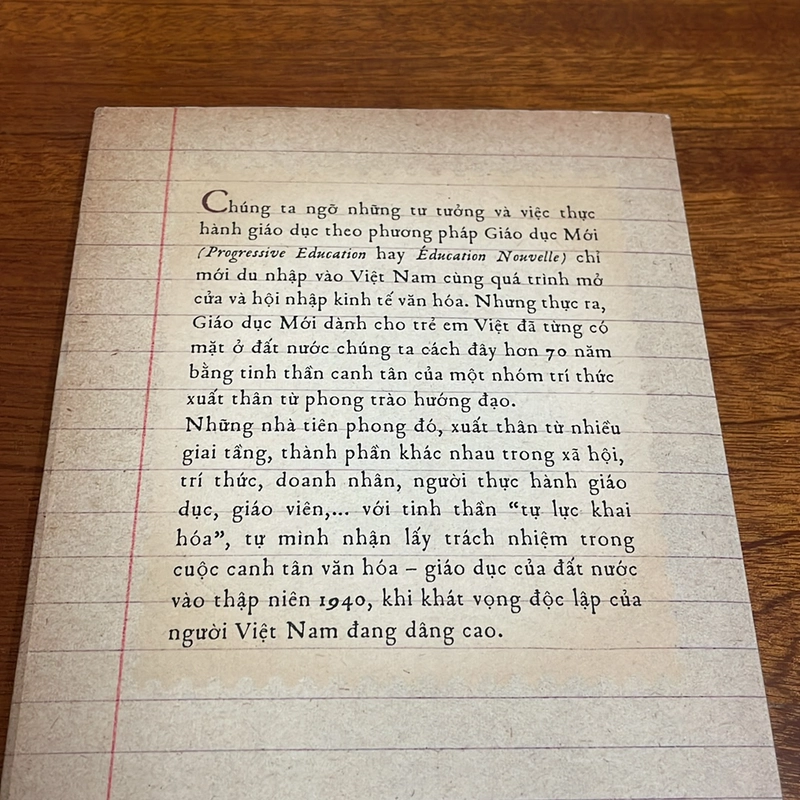 Chúng ta ngỡ những tư tưởng và việc thực
hành giáo dục theo phương pháp Giáo dục Mới
(Progressive Education hay Éducation Nouvelle) chỉ
mới du nhập vào Việt Nam cùng quá trình mở
cửa và hội nhập kinh tế văn hóa. Nhưng thực ra,
Giáo dục Mới dành cho trẻ em Việt đã từng có
mặt ở đất nước chúng ta cách đây hơn 70 năm
bằng tinh thần canh tân của một nhóm trí thức
xuất thân từ phong trào hướng đạo.
Những nhà tiên phong đó, xuất thân từ nhiều
giai tầng, thành phần khác nhau trong xã hội,
trí thức, doanh nhân, người thực hành giáo
dục, giáo viên,... với tinh thần “tự lực khai
hóa”, tự mình nhận lấy trách nhiệm trong
cuộc canh tân văn hóa – giáo dục của đất nước
vào thập niên 1940, khi khát vọng độc lập của
người Việt Nam đang dâng cao.